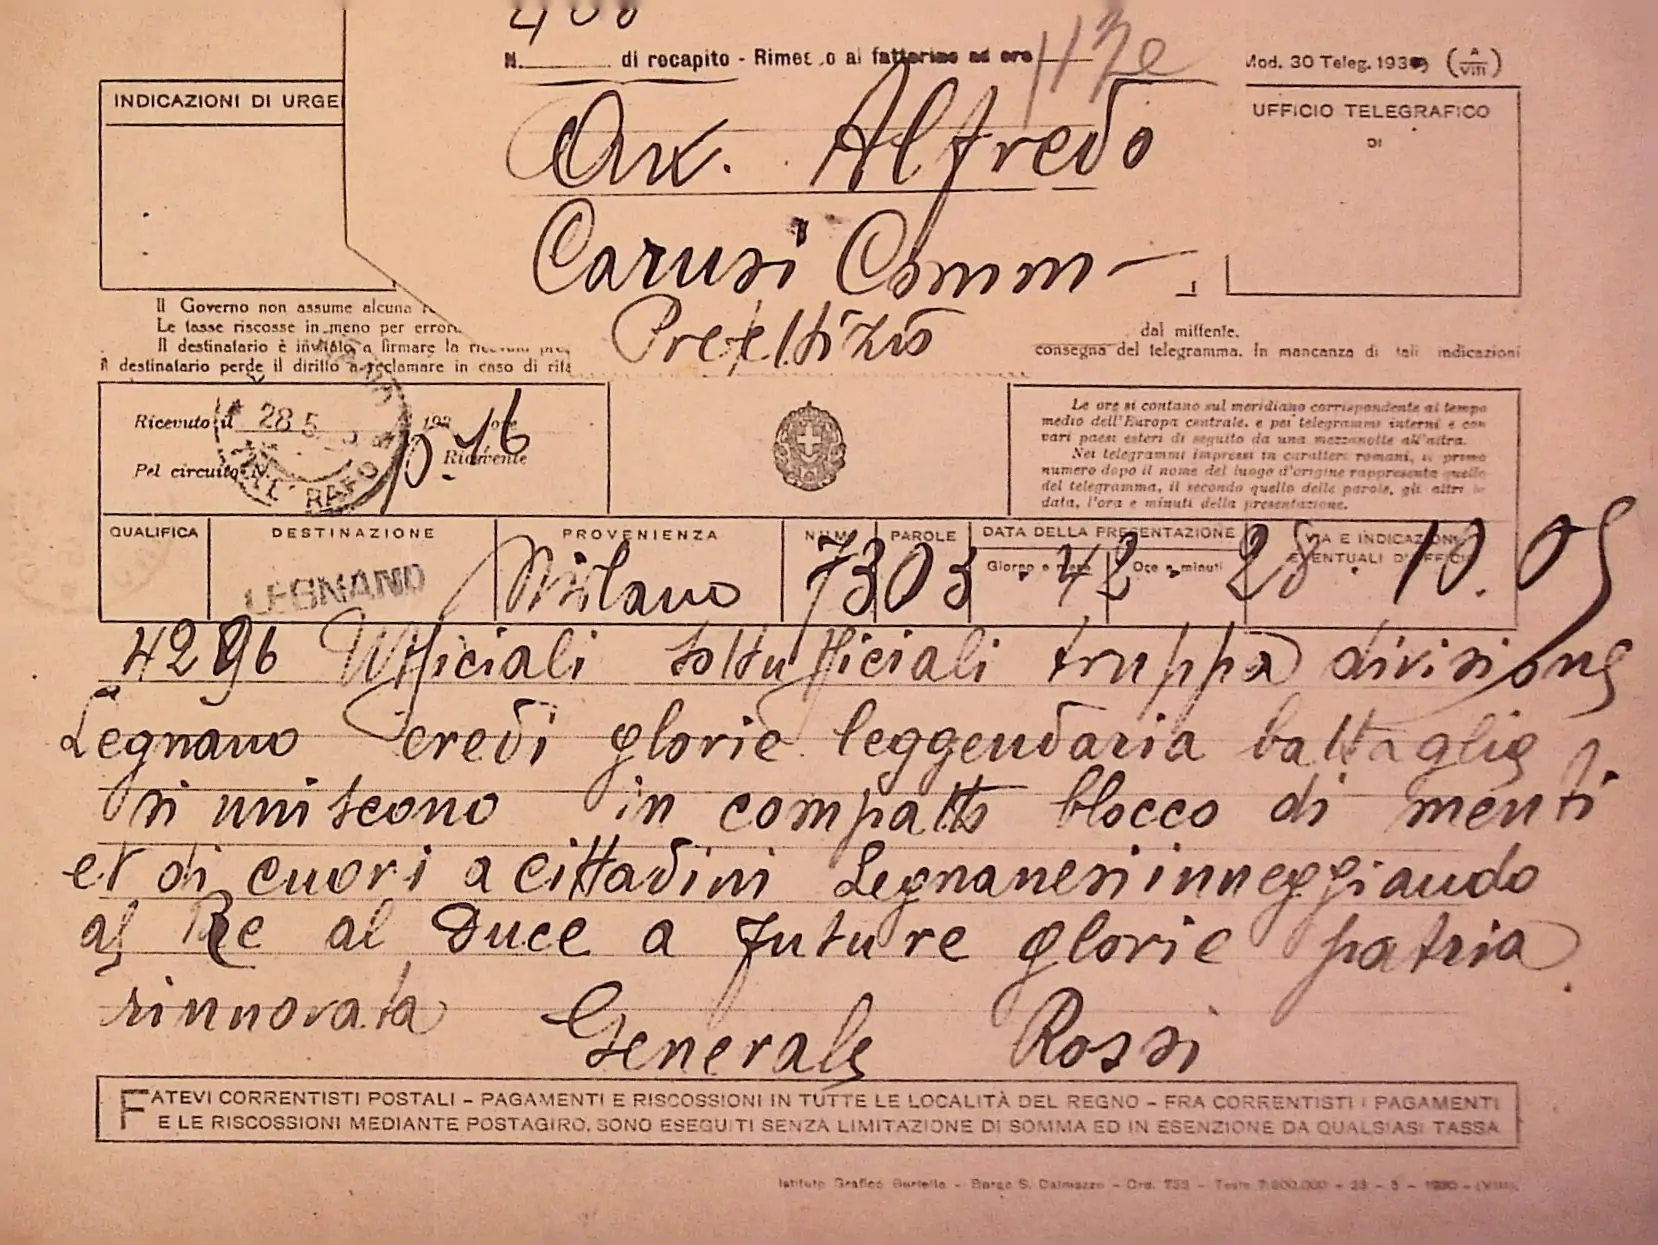 N. di recapito - Rimesso al fattorino ad ore
Mod. 30 Teleg. 193
INDICAZIONI DI URGE
UFFICIO TELEGRAFICO
DI
Avv. Alfredo
Carusi Comm
Prefettizio
Il Governo non assume alcuna
Le tasse riscosse in meno per errore
dal mittente.
Il destinatario è invitato a firmare la
consegna del telegramma. In mancanza di tali indicazioni
Il destinatario perde il diritto a reclamare in caso di
Ricevuto il 28 5 193 ore 10.16
Pel circuito N. Ricevente
LEGNANO
Le ore si contano sul meridiano corrispondente al tempo
medio dell'Europa centrale, e pei telegrammi interni e con
vari paesi esteri di seguito da una mezzanotte all'altra.
Nei telegrammi impressi in caratteri romani, il primo
numero dopo il nome del luogo d'origine rappresenta quello
del telegramma, il secondo quello delle parole, gli altri la
data, l'ora e minuti della presentazione.
QUALIFICA DESTINAZIONE PROVENIENZA NUM. PAROLE DATA DELLA PRESENTAZIONE VIA E INDICAZIONI
Giorno e mese Ore e minuti EVENTUALI D'UFFICIO
LEGNANO Milano 7303 . 42 . 28 . 10.05
4296 Ufficiali sottufficiali truppa divisione
Legnano eredi glorie leggendaria battaglia
si uniscono in compatto blocco di menti
et di cuori a cittadini Legnanesi inneggiando
al Re al Duce a future glorie patria
rinnovata Generale Rossi
FATEVI CORRENTISTI POSTALI - PAGAMENTI E RISCOSSIONI IN TUTTE LE LOCALITÀ DEL REGNO - FRA CORRENTISTI I PAGAMENTI
E LE RISCOSSIONI MEDIANTE POSTAGIRO, SONO ESEGUITI SENZA LIMITAZIONE DI SOMMA ED IN ESENZIONE DA QUALSIASI TASSA
Istituto Grafico Bertello - Borgo S. Dalmazzo - Ord.